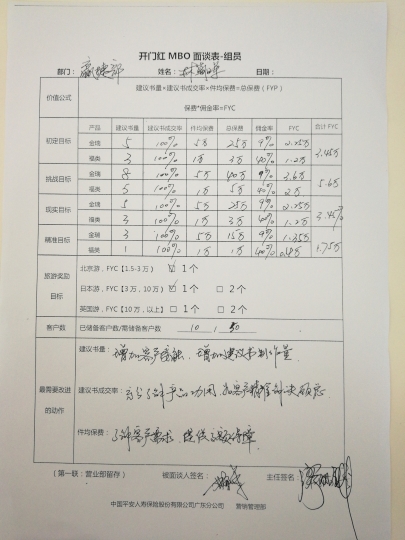 开门红 MBO 面谈表-组员
部门： 姓名： 日期：
价值公式
建议书量×建议书成交率×件均保费=总保费（FYP）
保费*佣金率=FYC
产品 建议书量 建议书成交率 件均保费 总保费 佣金率 FYC 合计 FYC
初定目标 金瑞 5 100% 5万 25万 9% 2.25万 3.45万
福类 3 100% 1万 3万 40% 1.2万
挑战目标 金瑞 8 100% 5万 40万 9% 3.6万 5.6万
福类 5 100% 1万 5万 40% 2万
现实目标 金瑞 5 100% 5万 25万 9% 2.25万 3.45万
福类 3 100% 1万 3万 40% 1.2万
精准目标 金瑞 3 100% 5万 15万 9% 1.35万 1.75万
福类 1 100% 1万 1万 40%
旅游奖励目标
北京游，FYC【1.5-3 万】 ☑ 1个
日本游，FYC【3 万，10 万】 □ 1个 □ 2个
英国游，FYC【10 万，以上】 □ 1个 □ 2个
客户数 已储备客户数/需储备客户数 10 / 50
最需要改进的动作
建议书量： 增加客户接触，增加建议书制作量
建议书成交率： 充分了解产品功用，和客户
件均保费： 了解客户需求，提供足额保障
（第一联：营业部留存） 被面谈人签名： 主任签名：
中国平安人寿保险股份有限公司广东分公司 营销管理部